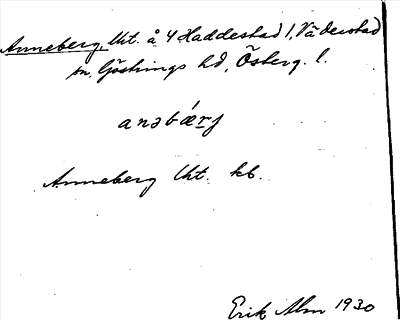 Anneberg, Lht. å 4 Haddestad 1, Väderstad
sn, Göstrings hd, Österg. l.
anəbǽrj
Anneberg Lht. kb.
Erik Alm 1930